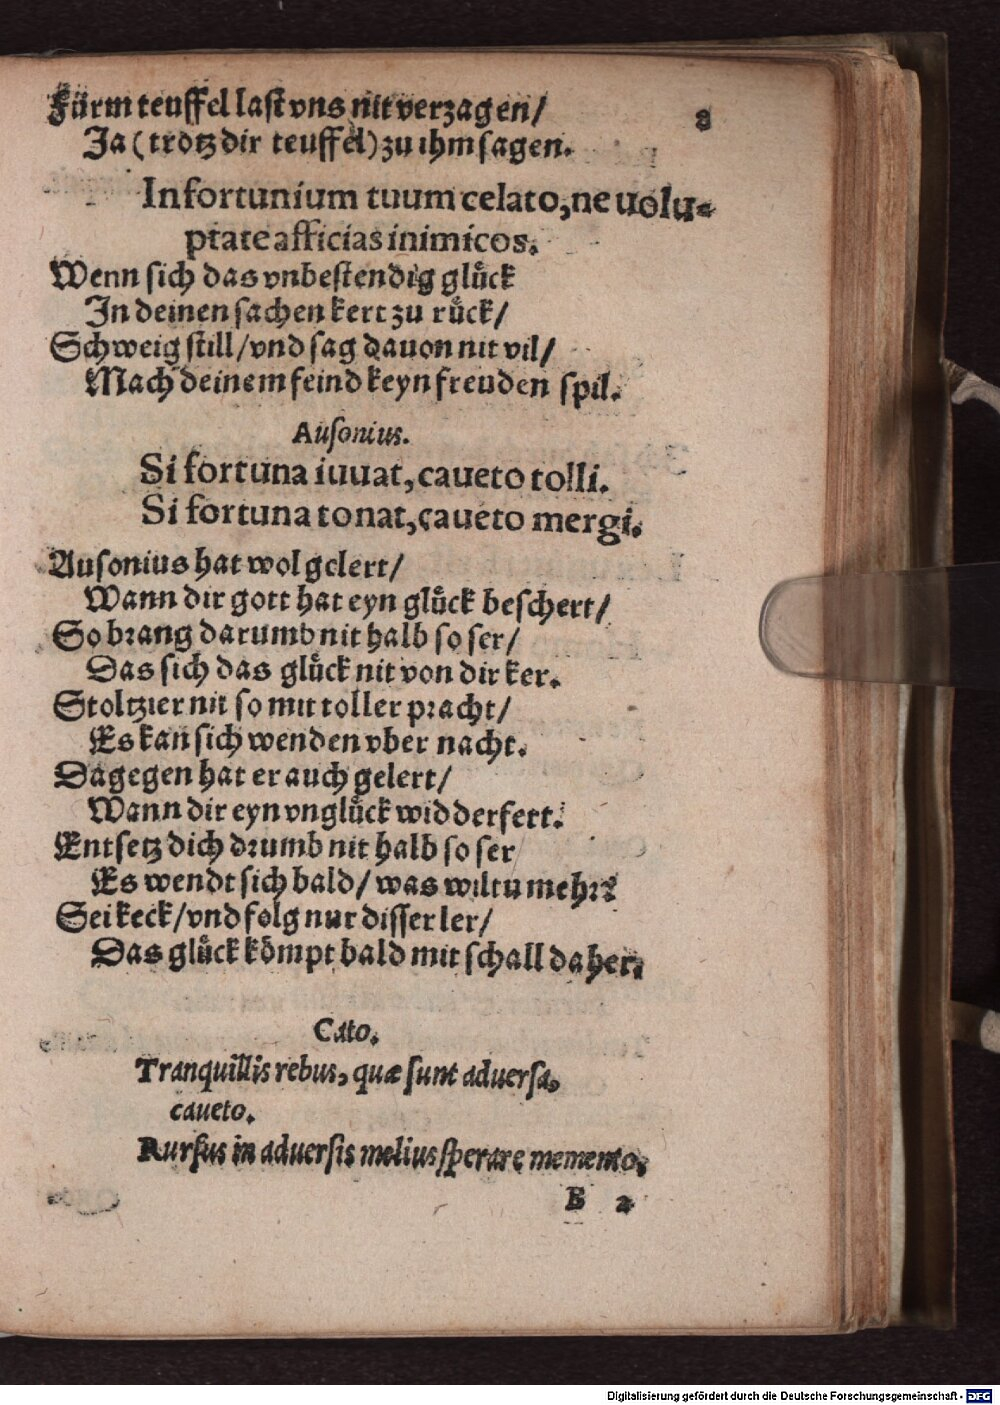 Fürm teuffel last vns nit verzagen/
8
Ja (trotz dir teuffel) zu ihm sagen.
Infortunium tuum celato, ne uolu-
ptate afficias inimicos.
Wenn sich das vnbestendig glůck
In deinen sachen kert zu růck/
Schweig still/ vnd sag dauon nit vil/
Mach deinem feind keyn freuden spil.
Ausonius.
Si fortuna iuuat, caueto tolli.
Si fortuna tonat, caueto mergi.
Ausonius hat wol gelert/
Wann dir gott hat eyn glůck beschert/
So brang darumb nit halb so ser/
Das sich das glůck nit von dir ker.
Stoltzier nit so mit toller pracht/
Es kan sich wenden vber nacht.
Dagegen hat er auch gelert/
Wann dir eyn vnglůck widderfert.
Entsetz dich drumb nit halb so ser
Es wendt sich bald/ was wiltu mehr?
Sei keck/ vnd folg nur disser ler/
Das glůck kömpt bald mit schall daher.
Cato.
Tranquillis rebus, quæ sunt aduersa,
caueto.
Rursus in aduersis melius sperare memento.
B 2
Digitalisierung gefördert durch die Deutsche Forschungsgemeinschaft - DFG